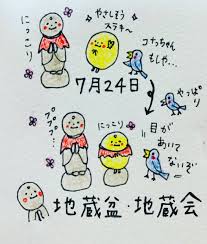 にっこり
やさしそう
ステキ〜
コナっちゃん
もしや…
7月24日
やっぱり
ププププ…
にっこり
目が
あいて
ないぞ
地蔵盆・地蔵会